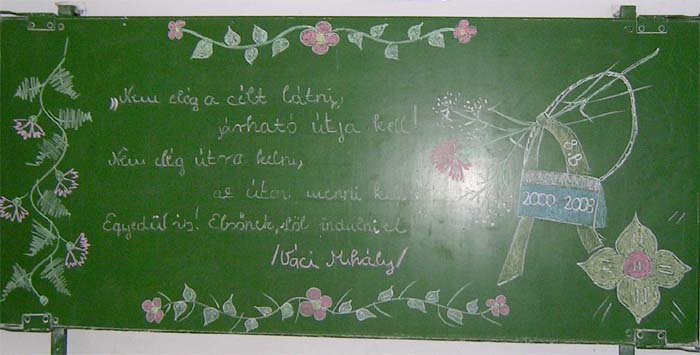 „Nem elég a célt látni,
járható útja kell!
Nem elég útra kelni,
az úton menni kell!
Egyedül is! Elsőnek, elől indulni el
/Váci Mihály/
8.B
2000-2008